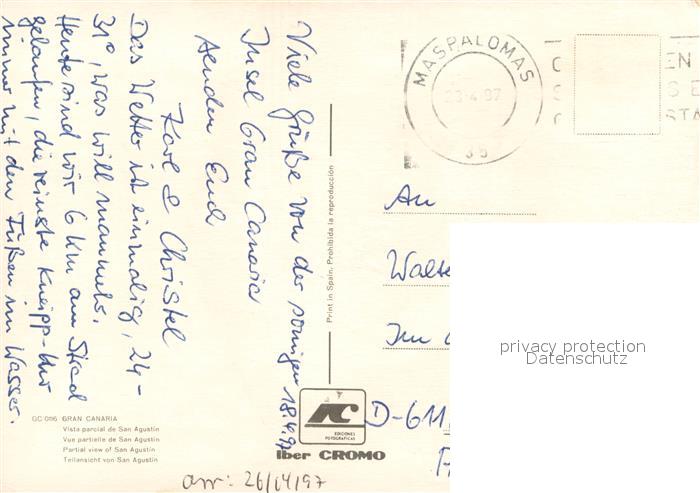 Viele Grüße von der sonnigen 18.4.97
Insel Gran Canaria
senden Euch
Karl & Christel
Das Wetter ist einmalig, 24-
31°, was will man mehr.
Heute sind wir 6 km am Strand
gelaufen, die reinste Kneipp-Kur
immer mit den Füßen im Wasser.
GC 0116 GRAN CANARIA
Vista parcial de San Agustín
Vue partielle de San Agustín
Partial view of San Agustín
Teilansicht von San Agustín
Print in Spain. Prohibida la reproducción
EDICIONES
FOTOGRAFICAS
iber CROMO
MASPALOMAS
23-4-97
35
EN
S E
STA
An
Walte
Im
D-611
privacy protection
Datenschutz
arr: 26/04/97